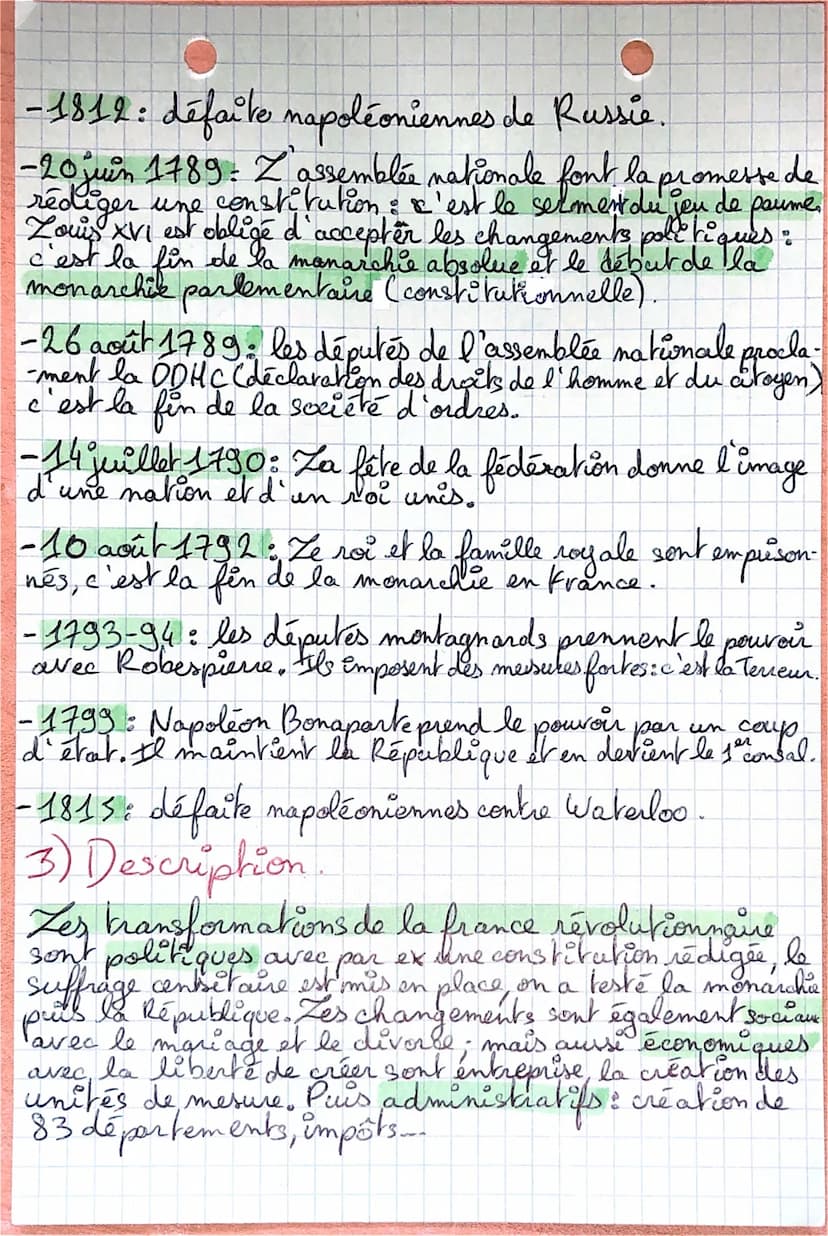 -1812: défaite napoléoniennes de Russie.
-20 juin 1789: L'assemblée nationale font la promesse de
rédiger une constitution: c'est le serment du jeu de paume.
Louis XVI est obligé d'accepter les changements politiques:
c'est la fin de la monarchie absolue et le début de la
monarchie parlementaire (constitutionnelle).
-26 août 1789: les députés de l'assemblée nationale procla-
-ment la DDHC (déclaration des droits de l'homme et du citoyen)
c'est la fin de la société d'ordres.
-14 juillet 1790: La fête de la fédération donne l'image
d'une nation et d'un roi unis.
-10 août 1792: Le roi et la famille royale sont emprison-
nés, c'est la fin de la monarchie en France.
-1793-94: les députés montagnards prennent le pouvoir
avec Robespierre. Ils imposent des mesures fortes: c'est la Terreur.
-1799: Napoléon Bonaparte prend le pouvoir par un coup
d'état. Il maintient la République et en devient le 1er consul.
-1815: défaite napoléoniennes contre Waterloo.
3) Description.
Les transformations de la france révolutionnaire
sont politiques avec par ex une constitution rédigée, le
suffrage censitaire est mis en place, on a testé la monarchie
puis la République. Les changements sont également sociaux
avec le mariage et le divorce; mais aussi économiques
avec la liberté de créer sont entreprise, la création des
unités de mesure. Puis administratifs: création de
83 départements, impôts...